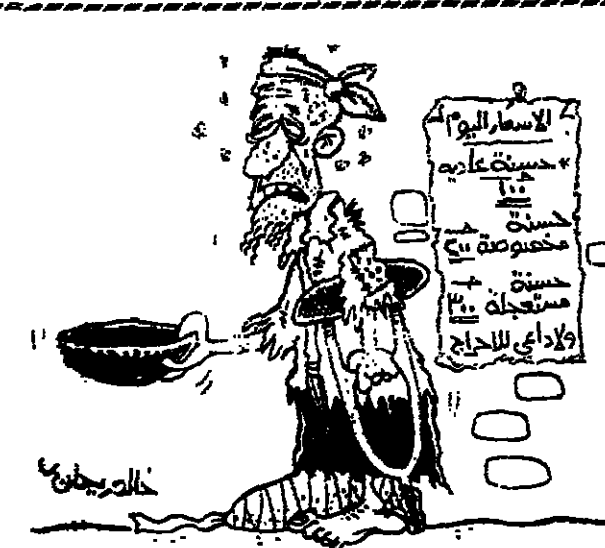 الاسعار اليوم
* حسنة عاديه
١٠٠ ج
حسنة
مخصوصة ٢٠٠ ج
حسنة
مستعجلة ٣٠٠ ج
ولاداعي للاحراج
خالد